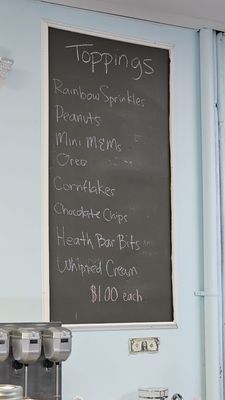 Toppings
Rainbow Sprinkles
Peanuts
Mini M&Ms
Oreo
Cornflakes
Chocolate Chips
Heath Bar Bits
Whipped Cream
$1.00 each